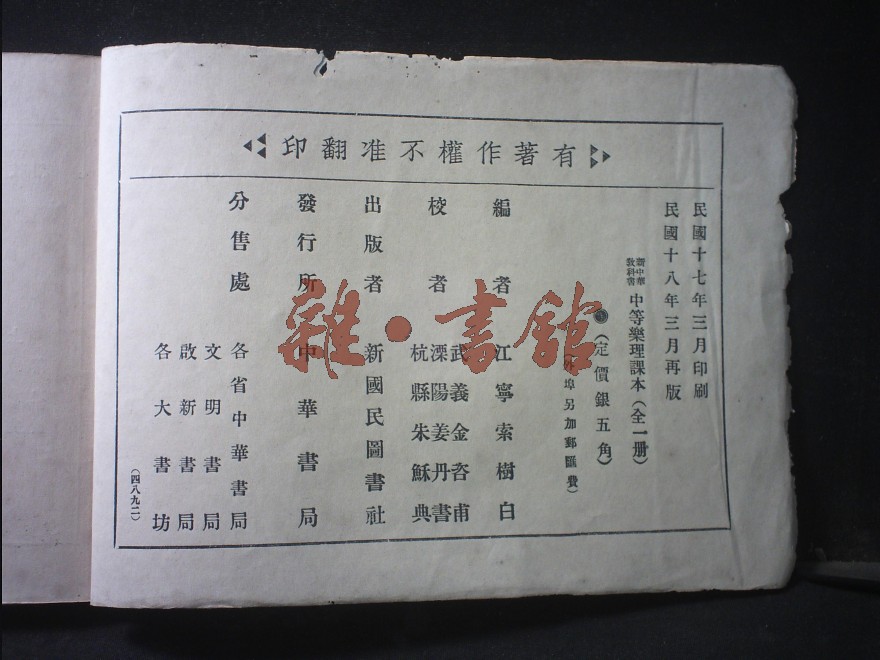 有著作權不准翻印
民國十七年三月印刷
民國十八年三月再版
新中華教科書 中等樂理課本（全一册）
（定價銀五角）
（外埠另加郵匯費）
編者 江寧索樹白
校者 武義金咨甫
溧陽姜丹書
杭縣朱穌典
出版者 新國民圖書社
發行所 中華書局
分售處 各省中華書局
文明書局
啟新書局
各大書坊
（四八九二）
雜·書館